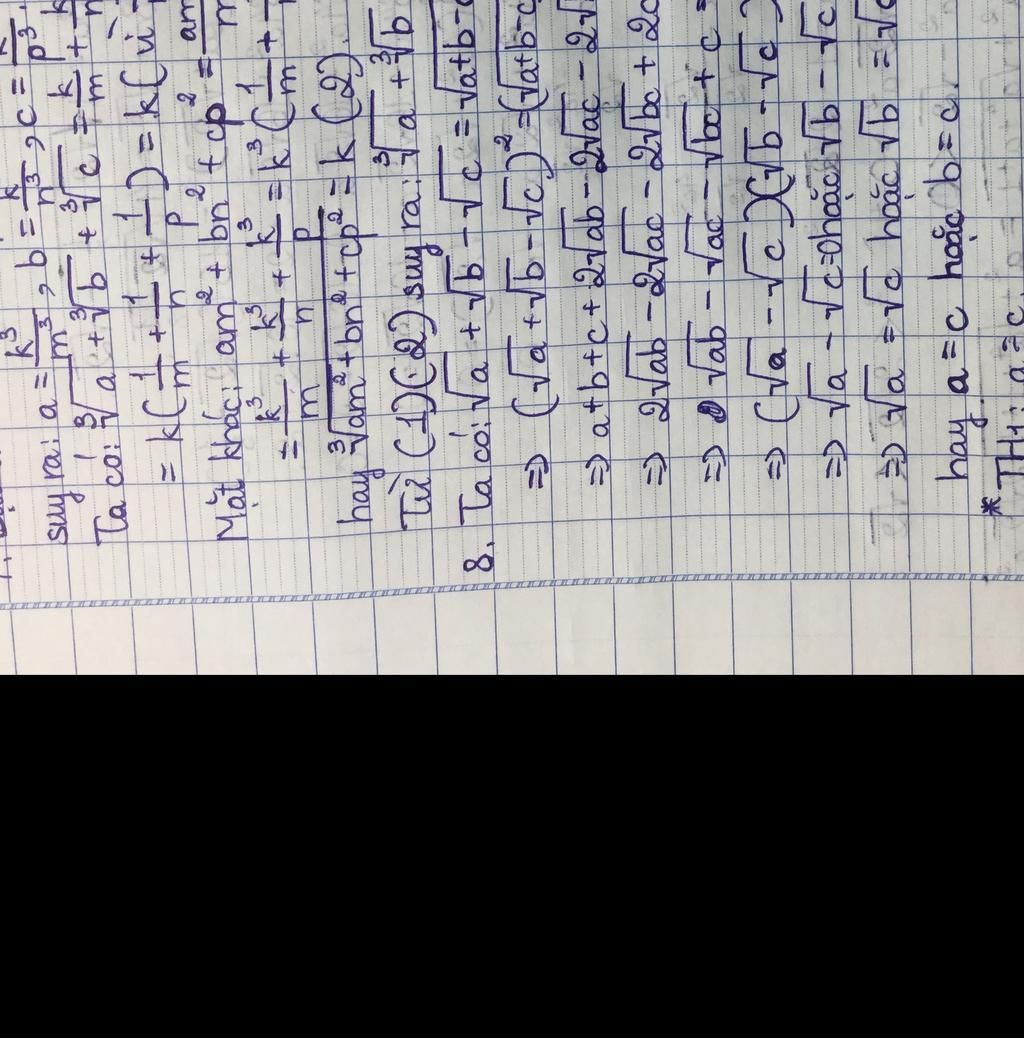 suy ra: a = k³/m³, b = k/n³, c = k/p³
Ta có: ∛a + ∛b + ∛c = k/m +
= k(1/m + 1/n + 1/p) = k (vì
Mặt khác: am² + bn² + cp² =
= k³/m + k³/n + k³/p = k³(1/m +
hay ∛(am² + bn² + cp²) = k (2)
Từ (1)(2) suy ra: ∛a + ∛b
8. Ta có: √a + √b - √c = √a+b-c
=> (√a + √b - √c)² = (√a+b-c
=> a+b+c + 2√ab - 2√ac - 2√
=> 2√ab - 2√ac - 2√bc + 2c
=> √ab - √ac - √bc + c =
=> (√a - √c)(√b - √c)
=> √a - √c = 0 hoặc √b - √c
=> √a = √c hoặc √b = √c
hay a = c hoặc b = c.
* TH1: a = c,